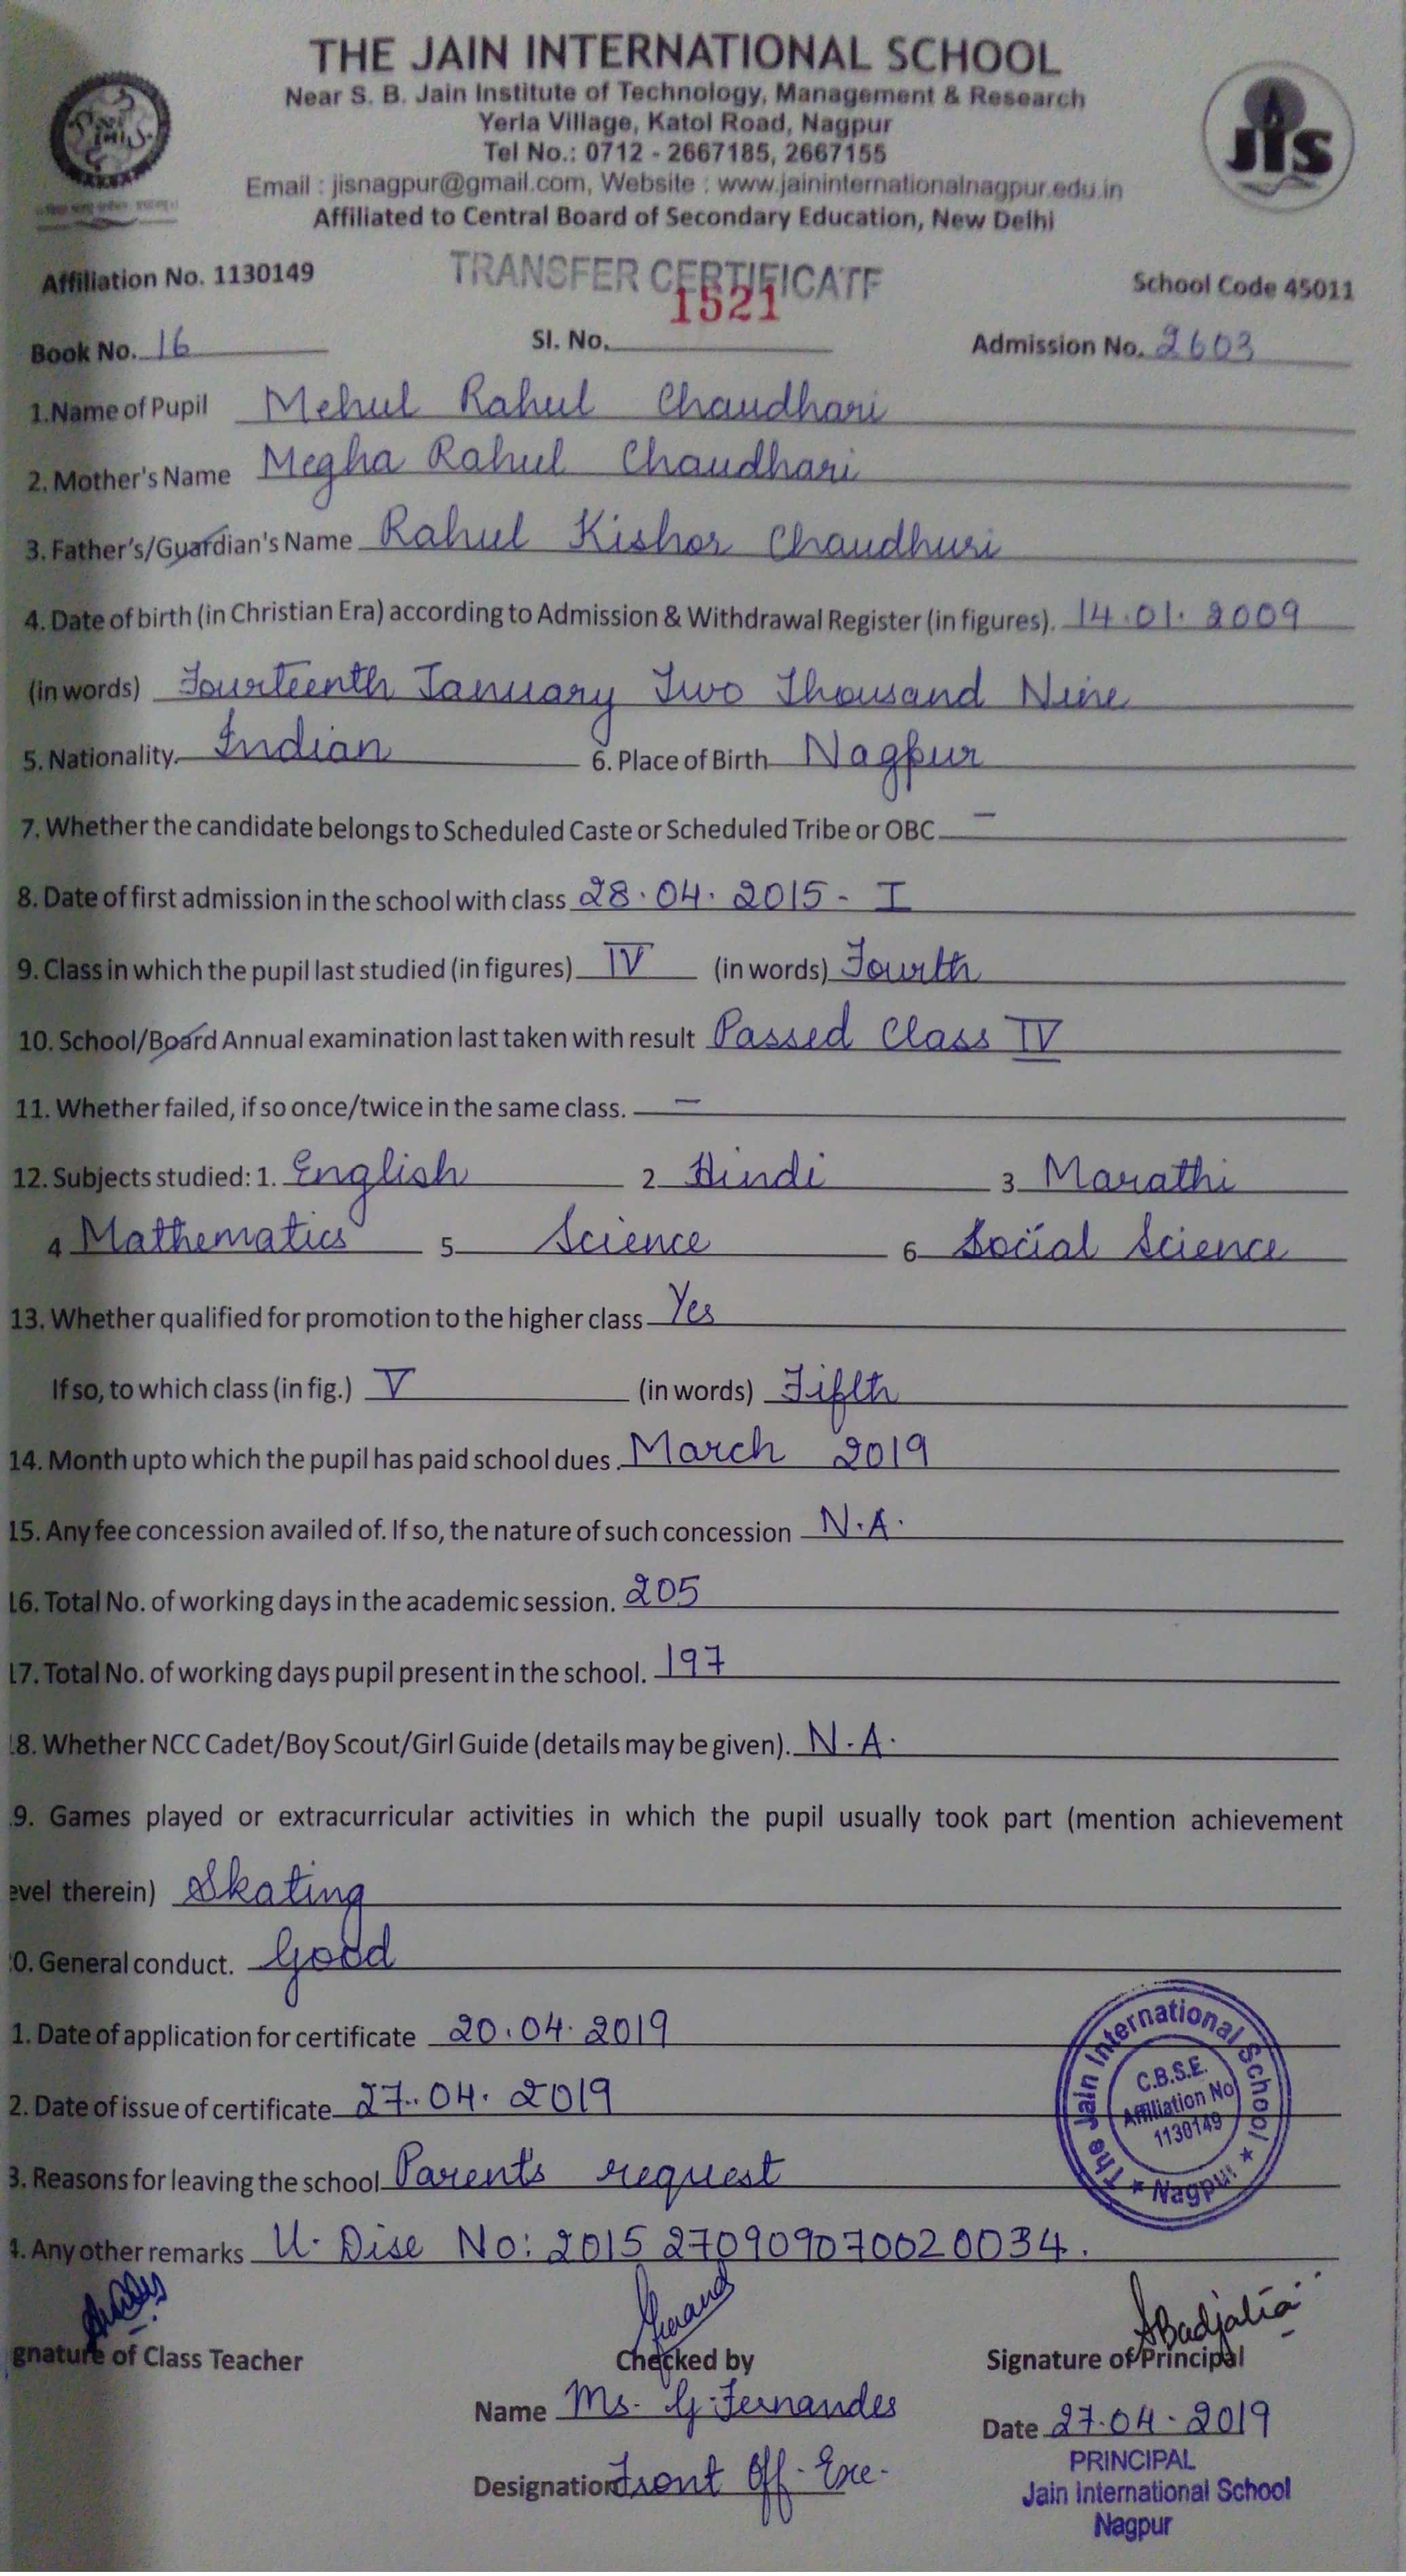 THE JAIN INTERNATIONAL SCHOOL
Near S. B. Jain Institute of Technology, Management & Research
Yerla Village, Katol Road, Nagpur
Tel No.: 0712 - 2667185, 2667155
Email : jisnagpur@gmail.com, Website : www.jaininternationalnagpur.edu.in
Affiliated to Central Board of Secondary Education, New Delhi
jis
Affiliation No. 1130149 TRANSFER CERTIFICATE School Code 45011
Book No. 16 Sl. No. 1521 Admission No. 2603
1.Name of Pupil Mehul Rahul Chaudhari
2. Mother's Name Megha Rahul Chaudhari
3. Father's/Guardian's Name Rahul Kishor Chaudhuri
4. Date of birth (in Christian Era) according to Admission & Withdrawal Register (in figures). 14.01.2009
(in words) Fourteenth January Two Thousand Nine
5. Nationality. Indian 6. Place of Birth Nagpur
7. Whether the candidate belongs to Scheduled Caste or Scheduled Tribe or OBC –
8. Date of first admission in the school with class 28.04.2015 - I
9. Class in which the pupil last studied (in figures) IV (in words) Fourth
10. School/Board Annual examination last taken with result Passed Class IV
11. Whether failed, if so once/twice in the same class. –
12. Subjects studied: 1. English 2 Hindi 3 Marathi
4 Mathematics 5 Science 6 Social Science
13. Whether qualified for promotion to the higher class Yes
If so, to which class (in fig.) V (in words) Fifth
14. Month upto which the pupil has paid school dues. March 2019
15. Any fee concession availed of. If so, the nature of such concession N.A.
16. Total No. of working days in the academic session. 205
17. Total No. of working days pupil present in the school. 197
18. Whether NCC Cadet/Boy Scout/Girl Guide (details may be given). N.A.
9. Games played or extracurricular activities in which the pupil usually took part (mention achievement
evel therein) Skating
0. General conduct. Good
1. Date of application for certificate 20.04.2019
2. Date of issue of certificate 27.04.2019
3. Reasons for leaving the school Parent's request
4. Any other remarks U. Dise No: 2015 270909070020034.
The Jain International School ★ Nagpur ★
C.B.S.E.
Affiliation No
1130149
gnature of Class Teacher Checked by Signature of Principal
Name Ms. G. Fernandes Date 27.04.2019
Designation Front Off. Exe.
PRINCIPAL
Jain International School
Nagpur